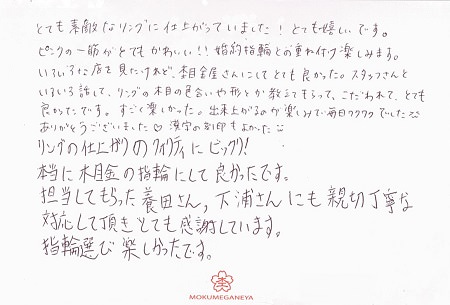 とても素敵なリングに仕上がっていました！とても嬉しいです。
ピンクの一筋がとてもかわいい！！婚約指輪との重ね付け楽しみます。
いろいろな店を見たけれど、杢目金屋さんにしてとても良かった。スタッフさんと
いろいろ話して、リングの木目の色合いや形とか教えてもらって、こだわれて、とても
良かったです。すごく楽しかった。出来上がるのが楽しみで毎日ワクワクでした
ありがとうございました♡漢字の刻印もよかった
リングの仕上がりのクオリティにビックリ！
本当に木目金の指輪にして良かったです。
担当してもらった養田さん、下浦さんにも親切丁寧な
対応して頂きとても感謝しています。
指輪選び楽しかったです。
杢
MOKUMEGANEYA